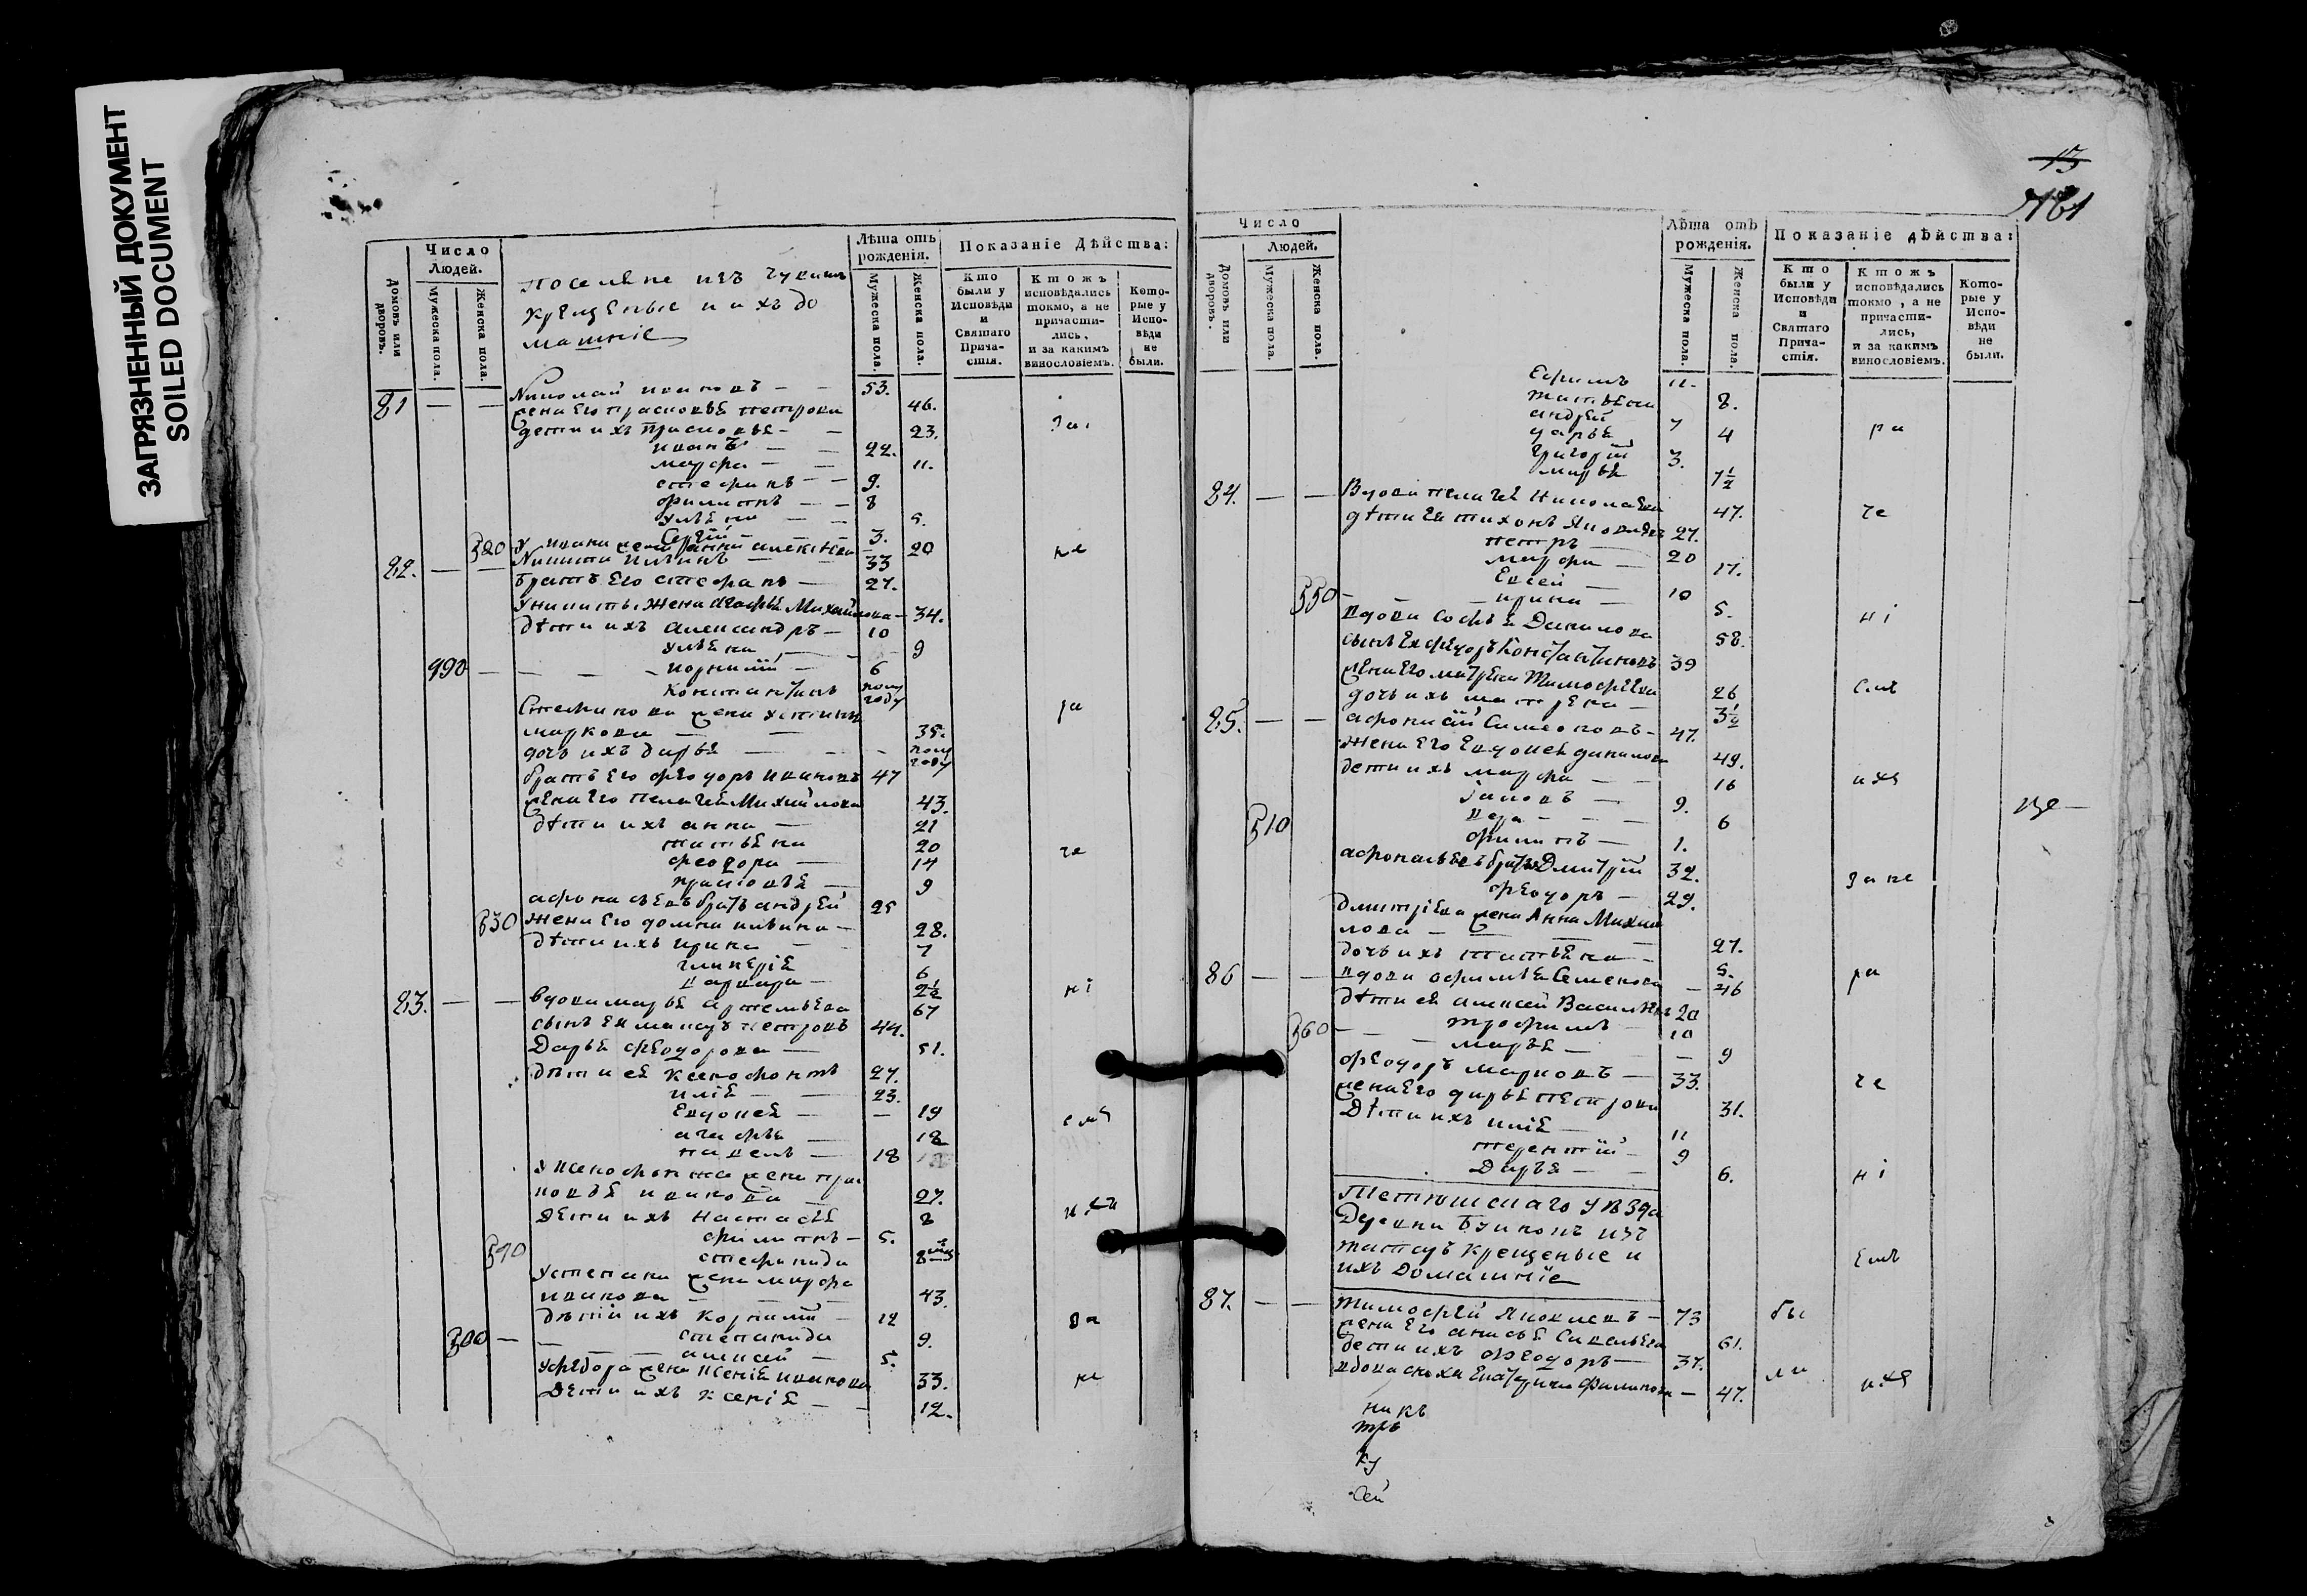 ЗАГРЯЗНЕННЫЙ ДОКУМЕНТ
SOILED DOCUMENT
Число
Людей.
Домовъ или дворовъ.
Мужеска пола.
Женска пола.
поселяне изъ чувашъ
крещеные и ихъ до
машніе
Лѣта отъ рожденія.
Мужеска пола.
Женска пола.
Показаніе Дѣйства:
Кто были у Исповѣди и Святаго Прича-стія.
Ктожъ исповѣдались токмо, а не причасти-лись, и за какимъ винословіемъ.
Кото-рые у Испо-вѣди не были.
81 — — Николай ивановъ — — 53.
жена Его прасковья петрова 46.
дети ихъ прасковья — — 23. за
иванъ — — 22.
марфа — — 11.
стефанъ — — 9.
филиппъ — — 8
ульяна — — 5.
Сергій — — 3.
520 у ивана жена анна алексѣева — 20 не
82. — — Никита ильинъ — 33
братъ Его стефанъ — 27.
У никиты жена агафья Михайлова — 34.
дѣти ихъ александръ — 10
ульяна — 9
490 — — корнилій — 6
Константинъ полу году
Степанова жена устинья ра
маркова — — 35.
дочь ихъ дарья — — полу году
братъ Его феодоръ ивановъ 47
жена Его пелагея Михайлова 43.
дѣти ихъ анна — 21
татьяна 20 че
феодора — 14
прасковья — 9
афонасьевъ братъ андрей 25
530 жена Его домна ильина — 28.
дѣти ихъ ирина — 7
гликерія 6
варвара — 2½ ні
83. — — вдова марья артемьева 67
сынъ Ея макаръ петровъ 44.
Дарья феодорова — 51.
дѣти ея ксенофонтъ 27.
илія — 23.
Евдокея — — 19 емъ
агафья — 18
павелъ — 18
У ксенофонта жена прас
ковья иванова — 27.
дети ихъ настасья 8
филиппъ — 5.
540 стефанида 8
У степана жена марфа
иванова — — 43.
дѣтіи ихъ Корнилій — 12 за
500 — — степанида 9.
алексей — 5.
У федора жена ксенія иванова 33. не
дети ихъ ксенія — — 12.
13
181
Число
Людей.
Домовъ или дворовъ.
Мужеска пола.
Женска пола.
Лѣта отъ рожденія.
Мужеска пола.
Женска пола.
Показаніе дѣйства:
Кто были у Исповѣди и Святаго Прича-стія.
Ктожъ исповѣдались токмо, а не причасти-лись, и за какимъ винословіемъ.
Кото-рые у Испо-вѣди не были.
Ефимъ 11.
татьяна 8.
андрей 7 ра
дарья 4
Григорій 3.
марья 1½
84. — — Вдова пелагея Николаева 47. че
дѣти Ея тихонъ Яковлевъ 27.
петръ — 20
марфа — 17.
Евсей — 10
550 — — ирина — 5. ні
вдова софья Данилова 58.
сынъ Ея феодоръ Константиновъ 39
жена Его матрена Тимофеева 26 емъ
дочь ихъ матрена — 3½
85. — — афонасій Симеоновъ — 47.
жена Его Евдокея данилова 49.
дети ихъ марфа — — 16 ихъ
Іаковъ — 9.
510 вера — — 6
филиппъ — 1.
афонасьевъ братья Дмитрій 32. за не
феодоръ — 29.
дмитріева жена Анна Михай
лова — — 27.
дочь ихъ татьяна — 5.
86 — — вдова афимья Семенова — 46 ра
дѣти ея алексей Васильевъ 20
560 — — трофимъ — 10
— марья — — 9
феодоръ марковъ — 33. че
жена Его дарья петрова 31.
Дѣти ихъ илія — 11
терентій — 9
Дарья — — 6. ні
Тетюшскаго уѣзда
Деревни
татаръ крещеные и емъ
ихъ домашніе
87. — — Тимофей Яковлевъ — 73 бы
жена Его анисья Савельева 61.
дети ихъ феодоръ — 37. ли
вдова сноха Екатерина Филипова — 47.